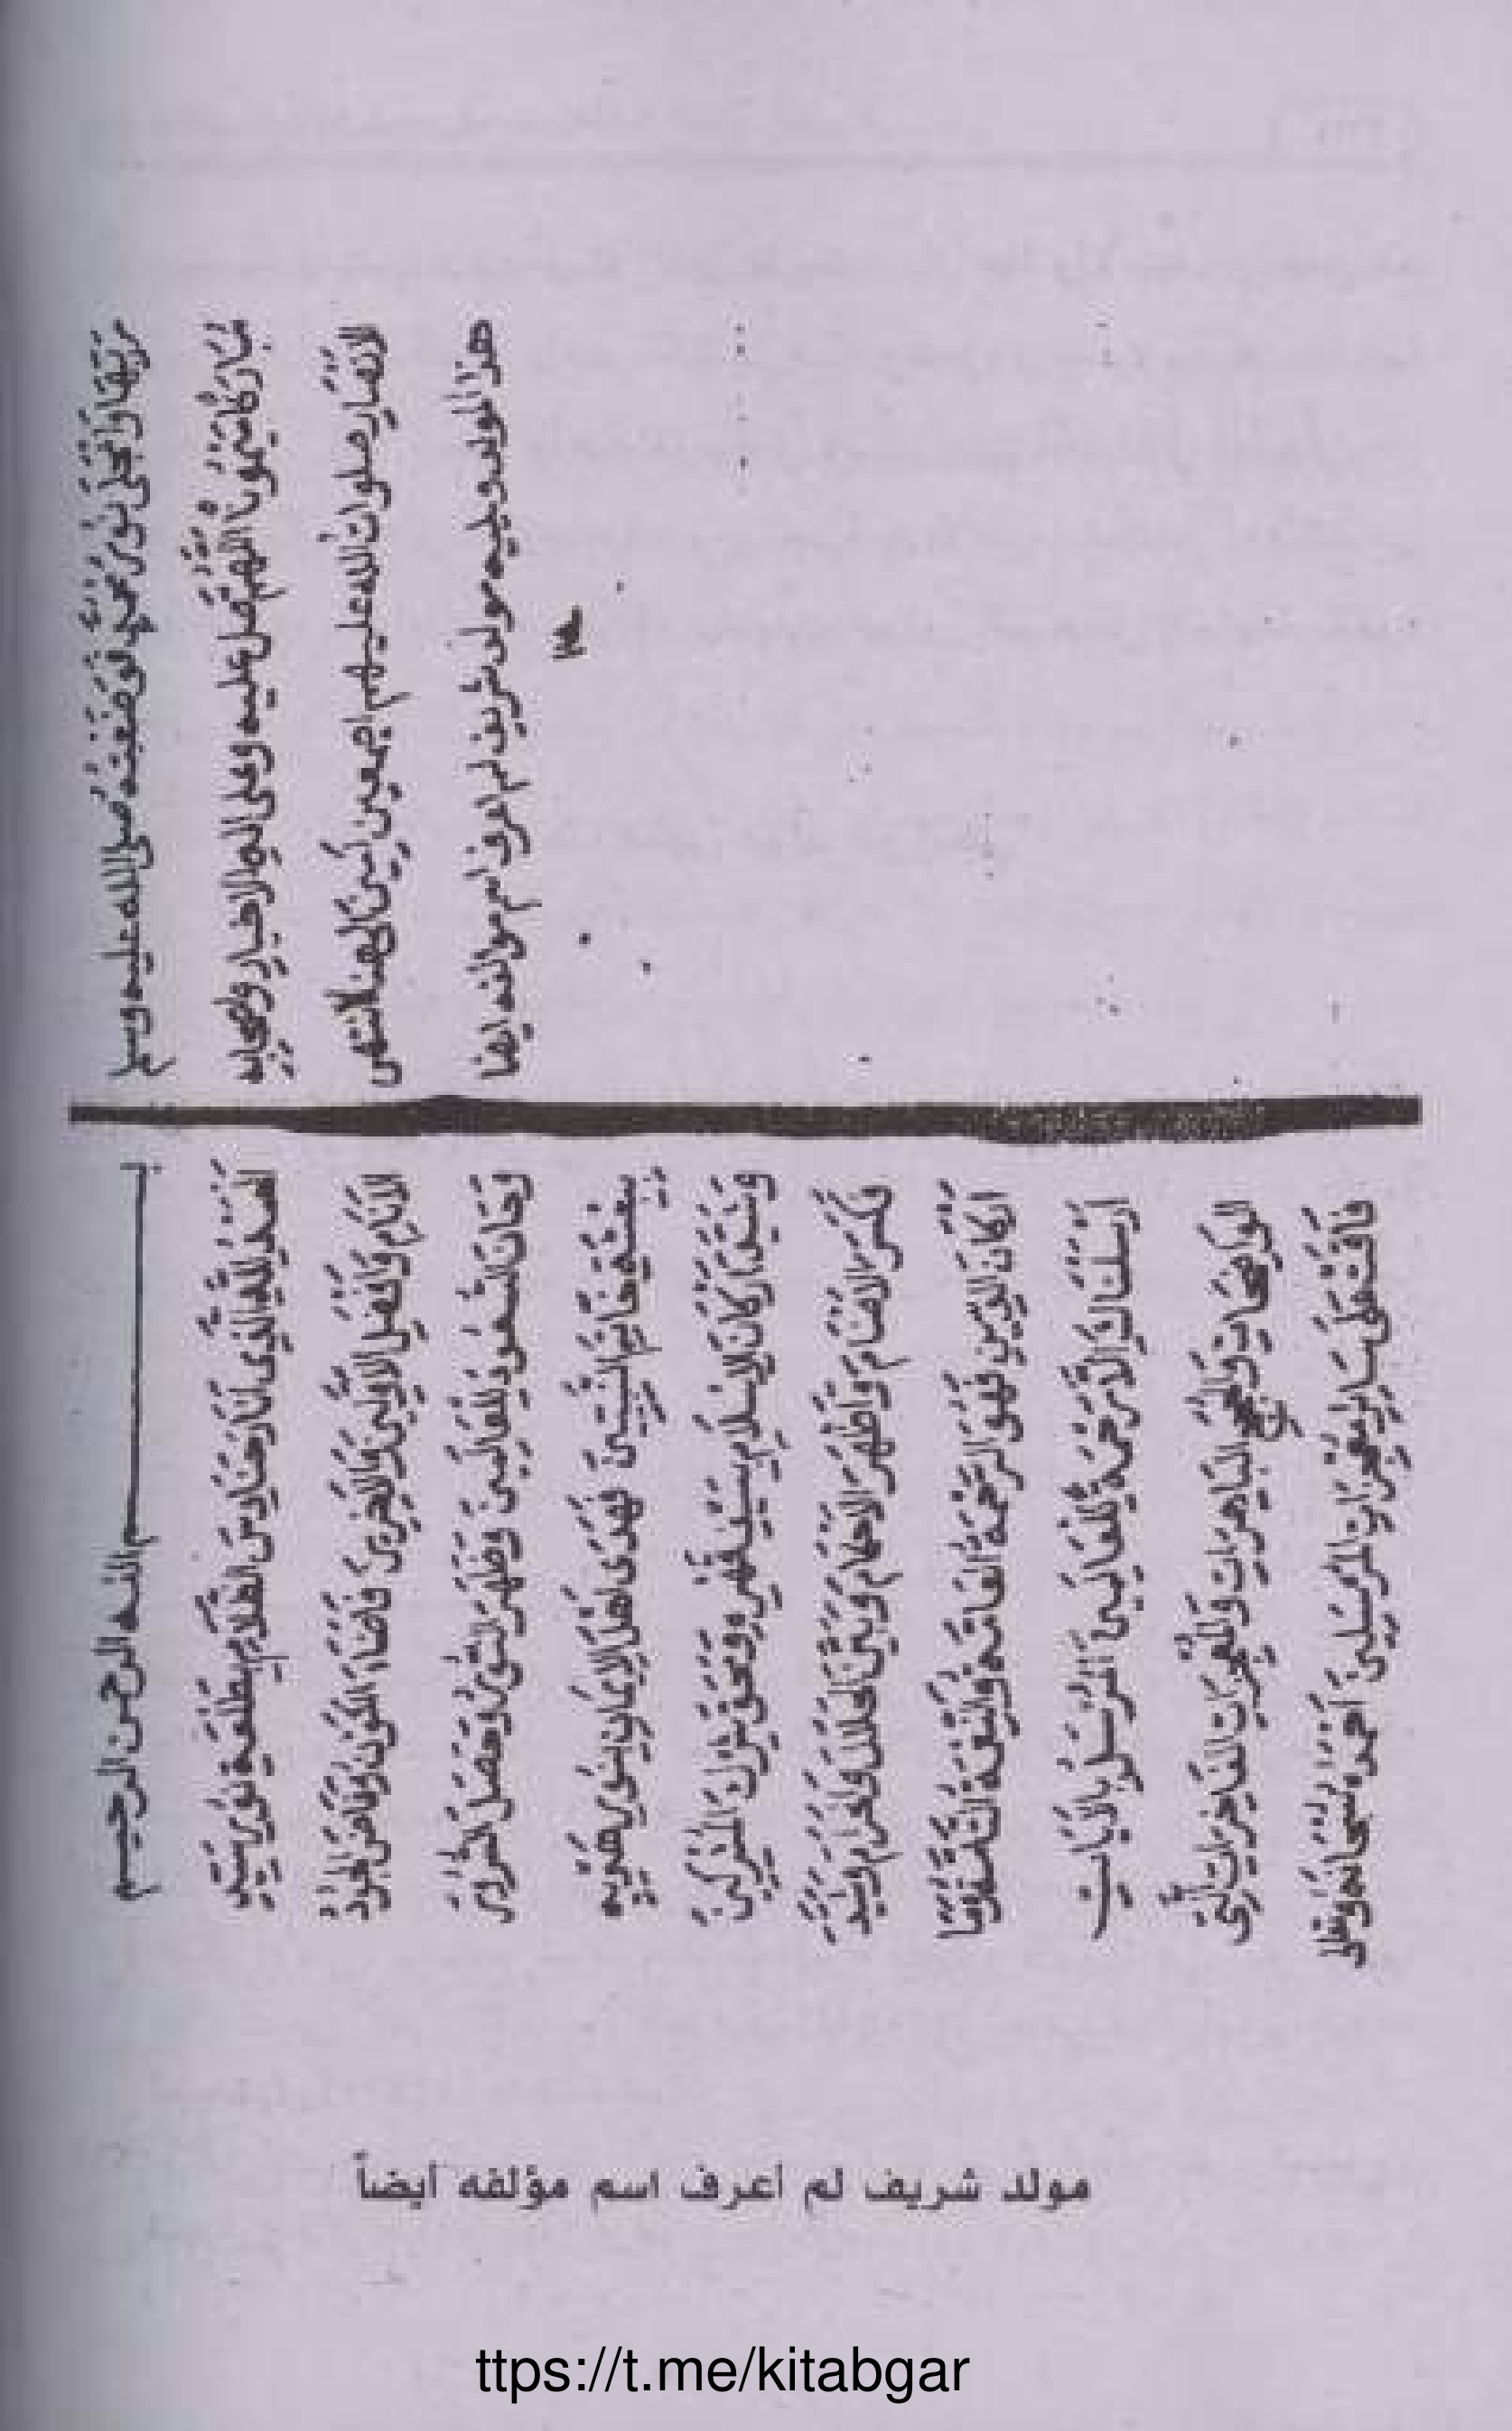 ربتها وانجلى بنور محمد لوضعته صلى الله عليه وسلم
مباركا ميمونا اللهم صل عليه وعلى اله الاخيار واصحابه
الانصار صلوات الله عليهم اجمعين آمين الى هنا انتهى
هذا المولد ويليه مولد شريف لم اعرف اسم مؤلفه ايضا
بسم الله الرحمن الرحيم
الحمد لله الذى انار حنادس الظلام بطلعة نور سيد
الانام وافضل الاولين والاخرين فاضاء الكون وفاض الجود
وحان السعود للعالمين وظهر النور وحصل السرور
ببعثة خاتم النبيين فهدى اهل الايمان بنور هديه
وشيد اركان الاسلام بسيف قهره ومحق شرك المشركين
فكسر الاصنام واظهر الاحكام وبين الحلال والحرام وشيد
اركان الدين فهو الرحمة العامة والنعمة التامة
ارسلناك الا رحمة للعالمين المرسل بالآيات
الواضحات والحجج الباهرات والمعجزات الفاخرات التى
فاقت على سائر معجزات المرسلين احمده سبحانه وتعالى
مولد شريف لم أعرف اسم مؤلفه أيضاً
ttps://t.me/kitabgar